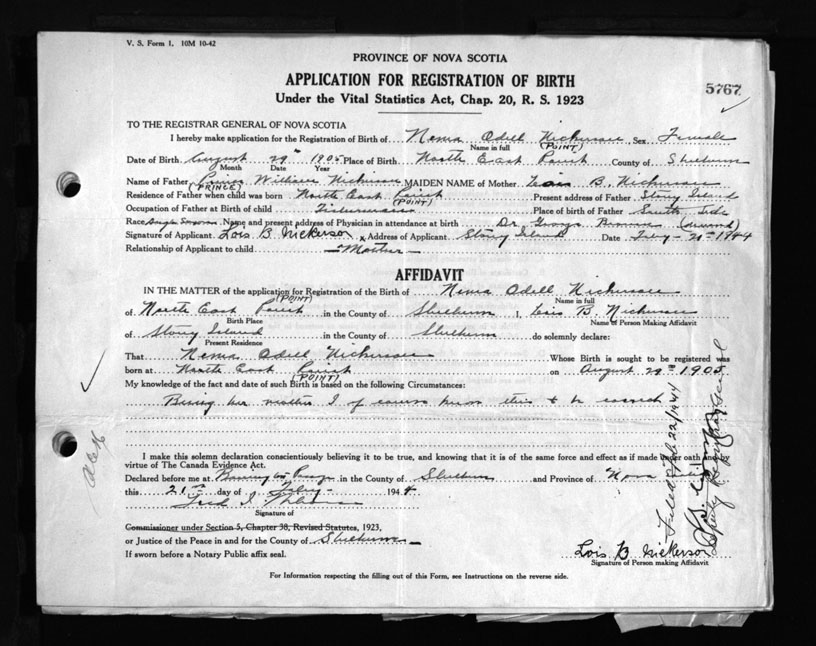 V. S. Form 1. 10M 10-42
PROVINCE OF NOVA SCOTIA
APPLICATION FOR REGISTRATION OF BIRTH
5767
Under the Vital Statistics Act, Chap. 20, R. S. 1923
TO THE REGISTRAR GENERAL OF NOVA SCOTIA
I hereby make application for the Registration of Birth of Nema Odell Nickerson, Sex Female
Name in full (POINT)
Date of Birth August 29th 1905 Place of Birth North East Point County of Shelburne
Month Date Year
Name of Father William Nickerson MAIDEN NAME of Mother Lois B. Nickerson
(PRINCE)
Residence of Father when child was born North East Point Present address of Father Stony Island
(POINT)
Occupation of Father at Birth of child Fisherman Place of birth of Father South Side
Race Name and present address of Physician in attendance at birth Dr. George (deceased)
Signature of Applicant Lois B Nickerson x Address of Applicant Stony Island Date Feby - 1944
Relationship of Applicant to child - Mother -
AFFIDAVIT
IN THE MATTER of the application for Registration of the Birth of Nema Odell Nickerson
(POINT) Name in full
of North East Point in the County of Shelburne I, Lois B. Nickerson
Birth Place Name of Person Making Affidavit
of Stony Island in the County of Shelburne do solemnly declare:
Present Residence
That Nema Odell Nickerson Whose Birth is sought to be registered was
born at North East Point on August 29th 1905
(POINT)
My knowledge of the fact and date of such Birth is based on the following Circumstances:
Being her mother I of course know this to be correct
I make this solemn declaration conscientiously believing it to be true, and knowing that it is of the same force and effect as if made under oath and by
virtue of The Canada Evidence Act.
Declared before me at Barrington Passage in the County of Shelburne and Province of Nova Scotia
this 21st day of Feby - 1944
Signature of
Commissioner under Section 5, Chapter 38, Revised Statutes, 1923,
or Justice of the Peace in and for the County of Shelburne
If sworn before a Notary Public affix seal.
Lois B Nickerson
Signature of Person making Affidavit
For Information respecting the filling out of this Form, see Instructions on the reverse side.
Filed Feb 22/1944
Deputy Registrar General